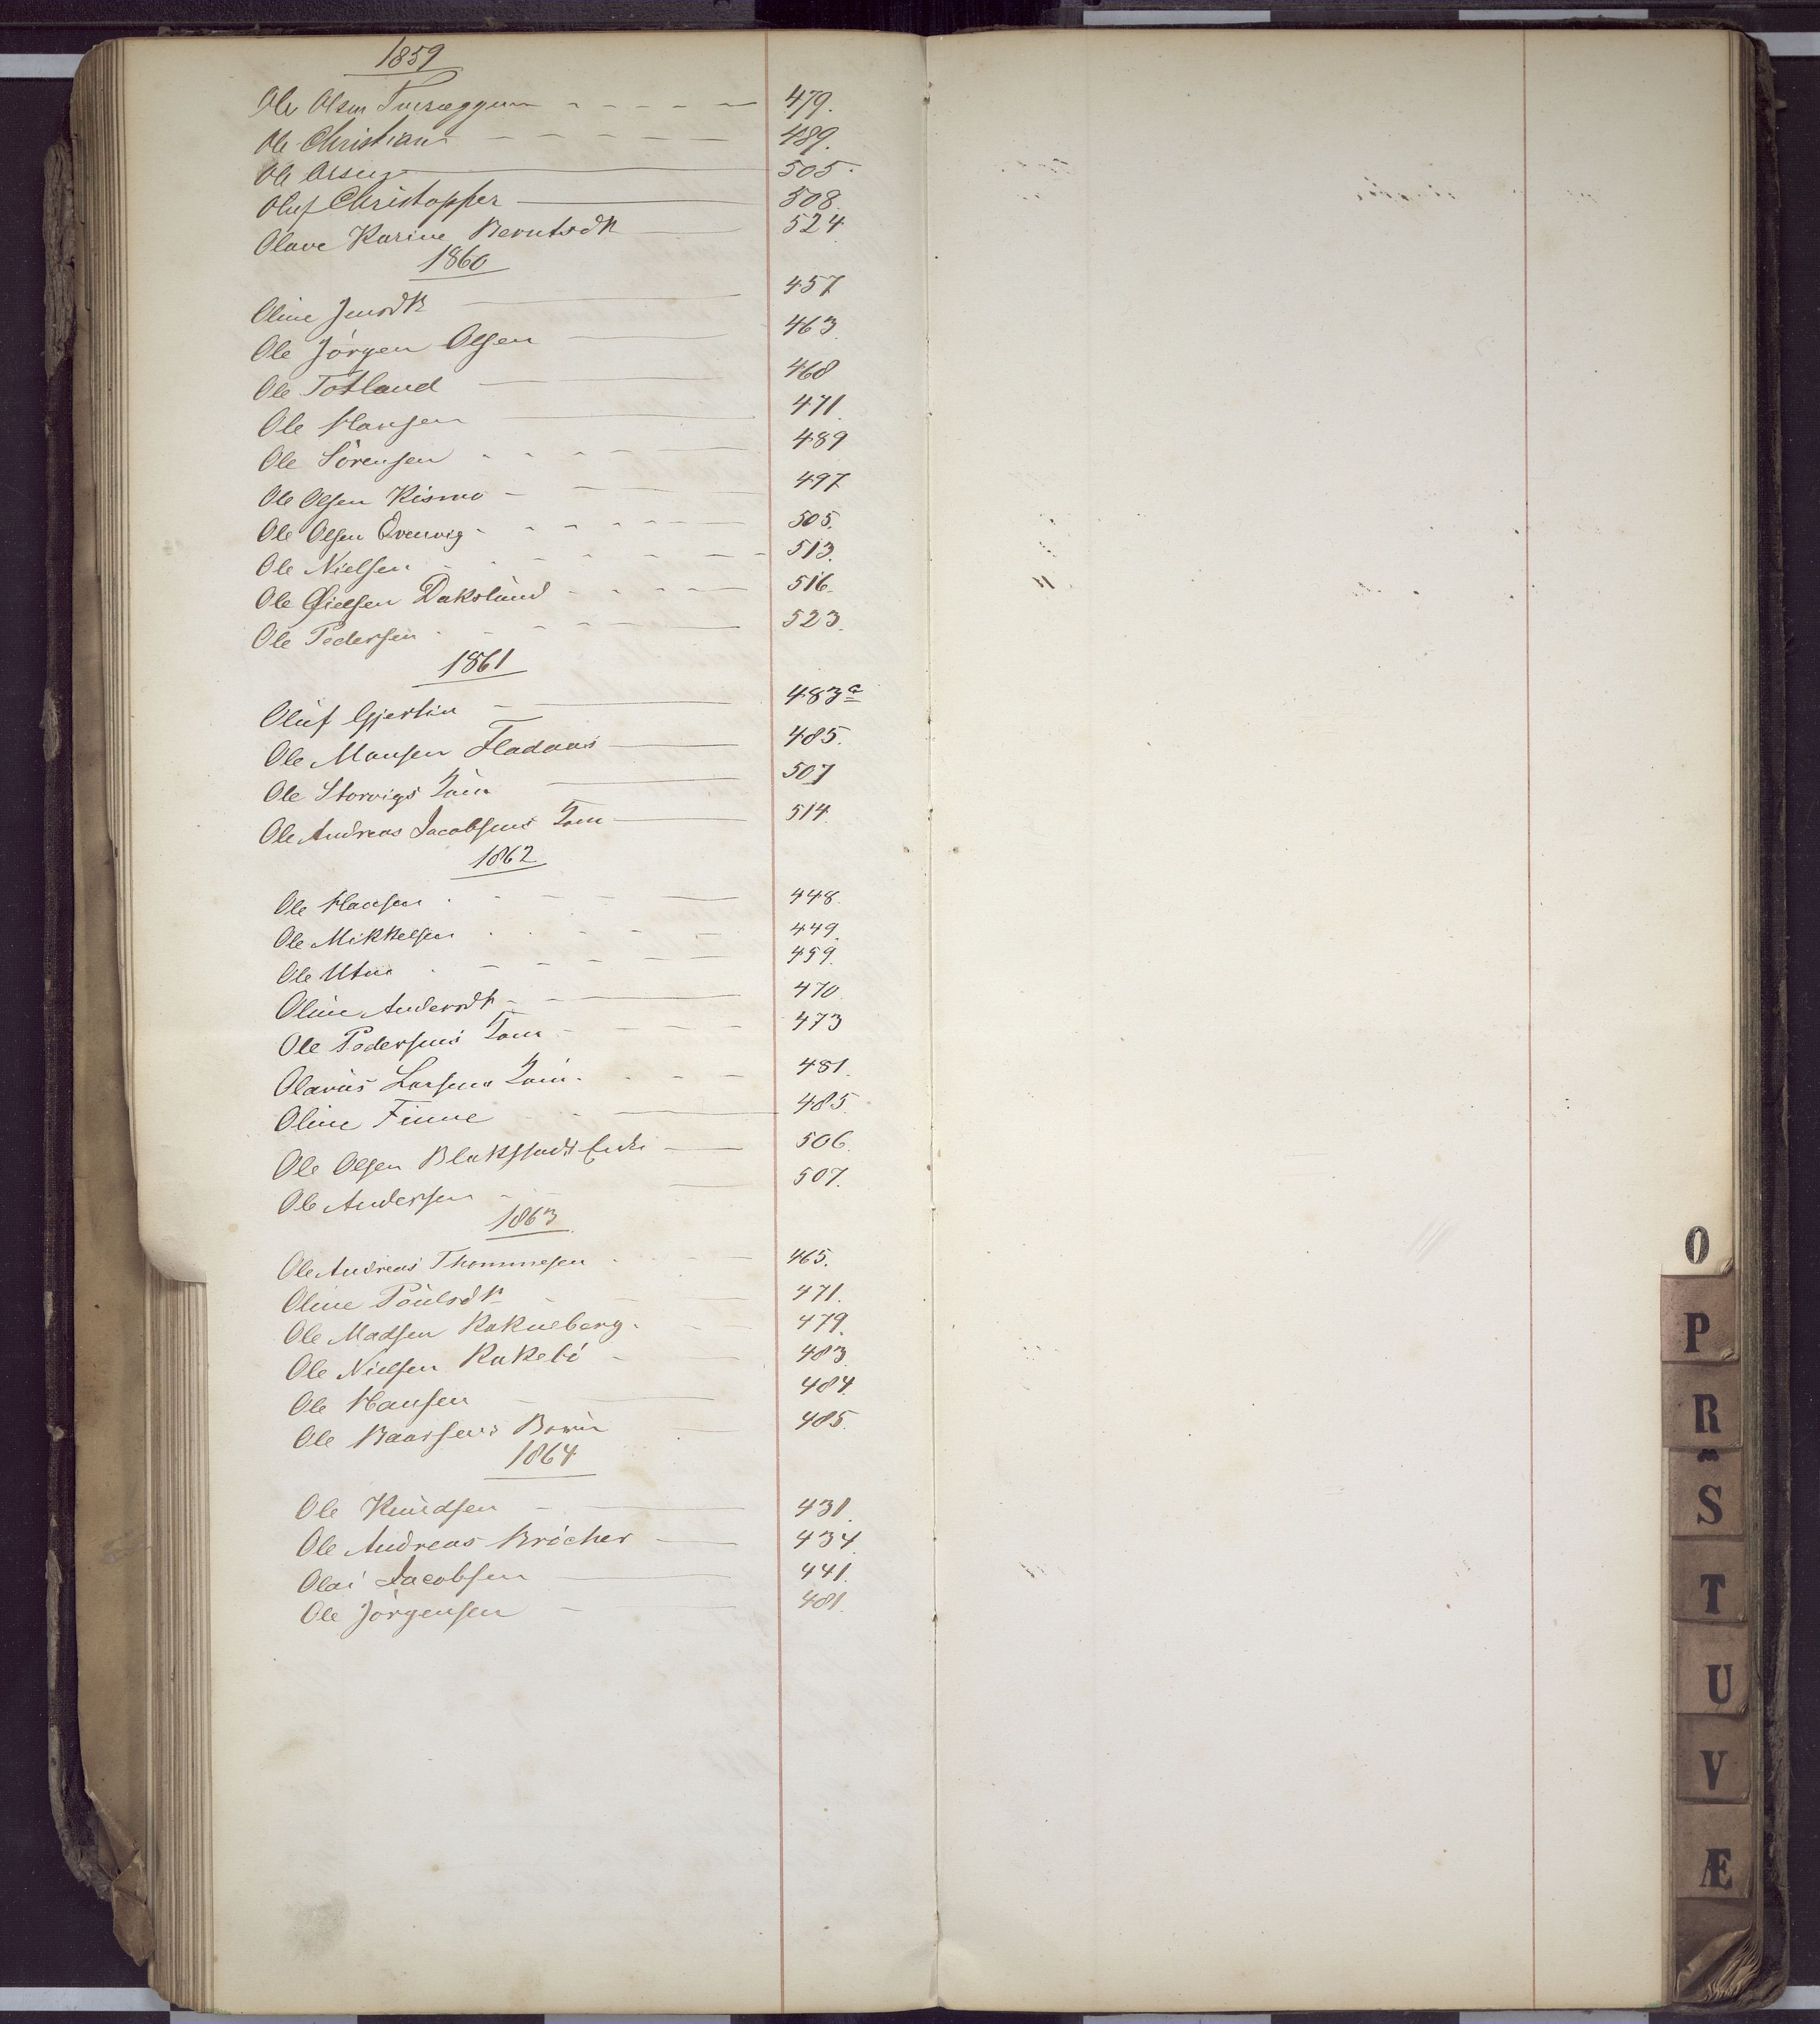 1859
Ole Olsen 479.
Ole Christian 489.
Ole 505.
Oluf Christopher 508.
Olave Karine Berntsdtr 524
1860
Oline Jensdtr 457
Ole Jörgen Olsen 463.
Ole Totland 468
Ole Hansen 471.
Ole Sörensen 489
Ole Olsen Rismo 497
Ole Olsen Qvenvig 505.
Ole Nielsen 513.
Ole Gielsen Dakslund 516.
Ole Pedersen 523.
1861
Oluf Gjertin 483a
Ole Monsen Fladaas 485.
Ole Storvigs 507
Ole Andreas Jacobsens 514.
1862
Ole Hansen 448.
Ole Mikkelsen 449.
Ole Utne 459.
Oline Andersdtr 470.
Ole Pedersens 473
Olavus Larsens 481.
Oline Finne 485.
Ole Olsen Blakstads Enke 506.
Ole Andersen 507.
1863
Ole Andreas Thommesen 465.
Oline Poulsdtr 471.
Ole Madsen Rakneberg 479.
Ole Nielsen Rakebö 483.
Ole Hansen 484.
Ole Baarsens 485.
1864
Ole Knudsen 431.
Ole Andreas Bröcher 434.
Olai Jacobsen 441.
Ole Jörgensen 481.
O
P
R
S
T
U
V
Æ